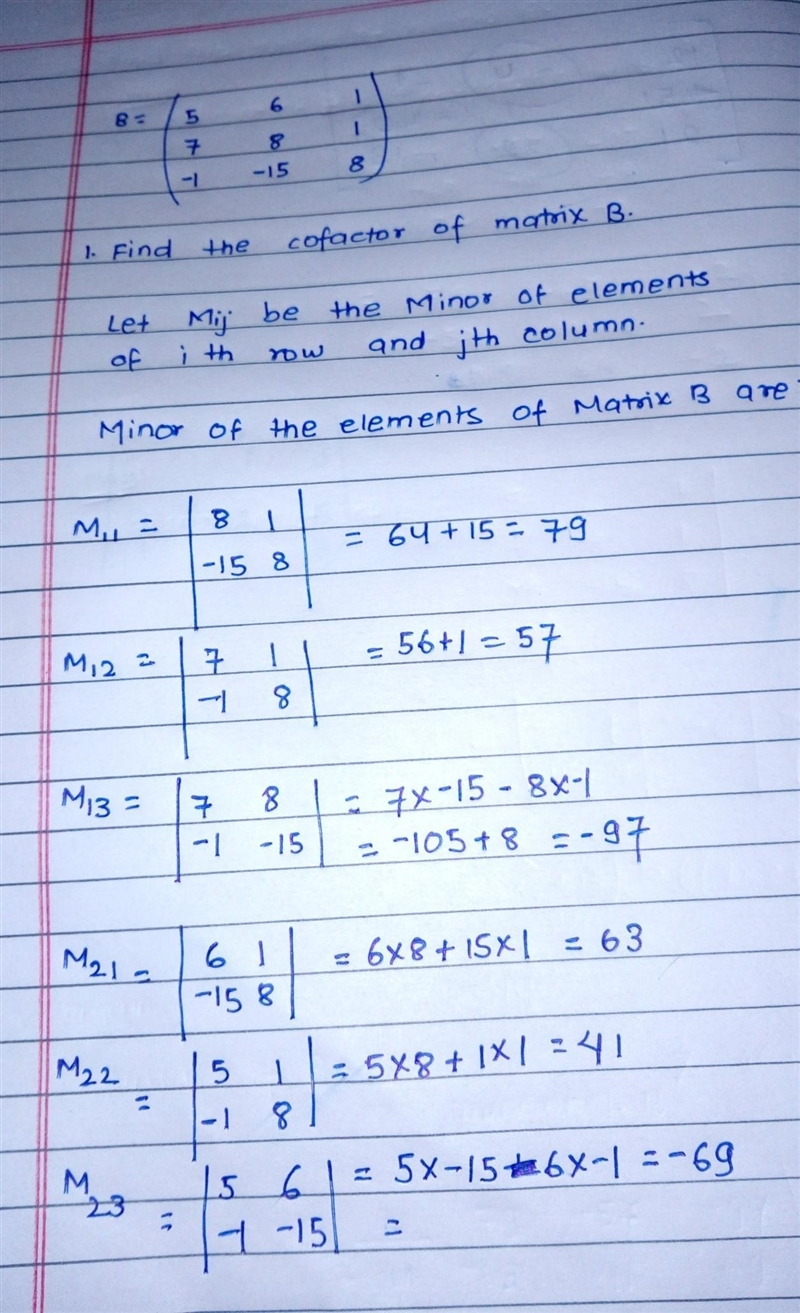 B = ( 5 6 1
7 8 1
-1 -15 8 )
1. Find the cofactor of matrix B.
Let Mij be the Minor of elements
of i th row and jth column.
Minor of the elements of Matrix B are
M11 = | 8 1 | = 64 + 15 = 79
| -15 8 |
M12 = | 7 1 | = 56+1 = 57
| -1 8 |
M13 = | 7 8 | = 7x-15 - 8x-1
| -1 -15 | = -105 + 8 = -97
M21 = | 6 1 | = 6x8 + 15x1 = 63
| -15 8 |
M22 = | 5 1 | = 5x8 + 1x1 = 41
| -1 8 |
M23 = | 5 6 | = 5x-15 - 6x-1 = -69
| -1 -15 | =